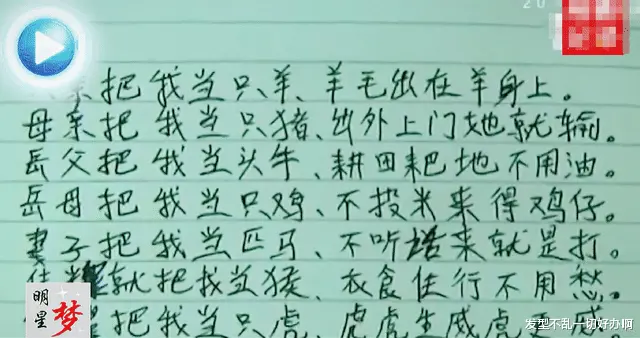 20
亲把我当只羊、羊毛出在羊身上。
母亲把我当只猪、出外上门她就输。
岳父把我当头牛、耕田耙地不用油。
岳母把我当只鸡、不投米来得鸡仔。
妻子把我当匹马、不听话来就是打。
就把我当猴、衣食住行不用愁。
把我当只虎、虎虎生威虎
明星
梦
发型不乱一切好办啊